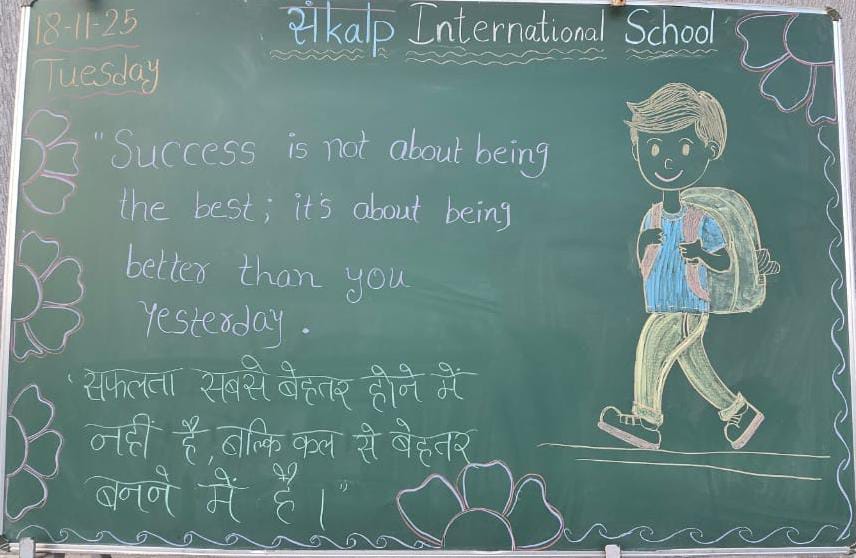 18-11-25
Tuesday
संकल्प International School
"Success is not about being
the best; it's about being
better than you
Yesterday.
'सफलता सबसे बेहतर होने में
नहीं है, बल्कि कल से बेहतर
बनने में है।"